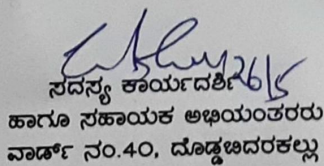 26/5
ಸದಸ್ಯ ಕಾರ್ಯದರ್ಶಿ
ಹಾಗೂ ಸಹಾಯಕ ಅಭಿಯಂತರರು
ವಾರ್ಡ್ ನಂ.40, ದೊಡ್ಡಬಿದರಕಲ್ಲು